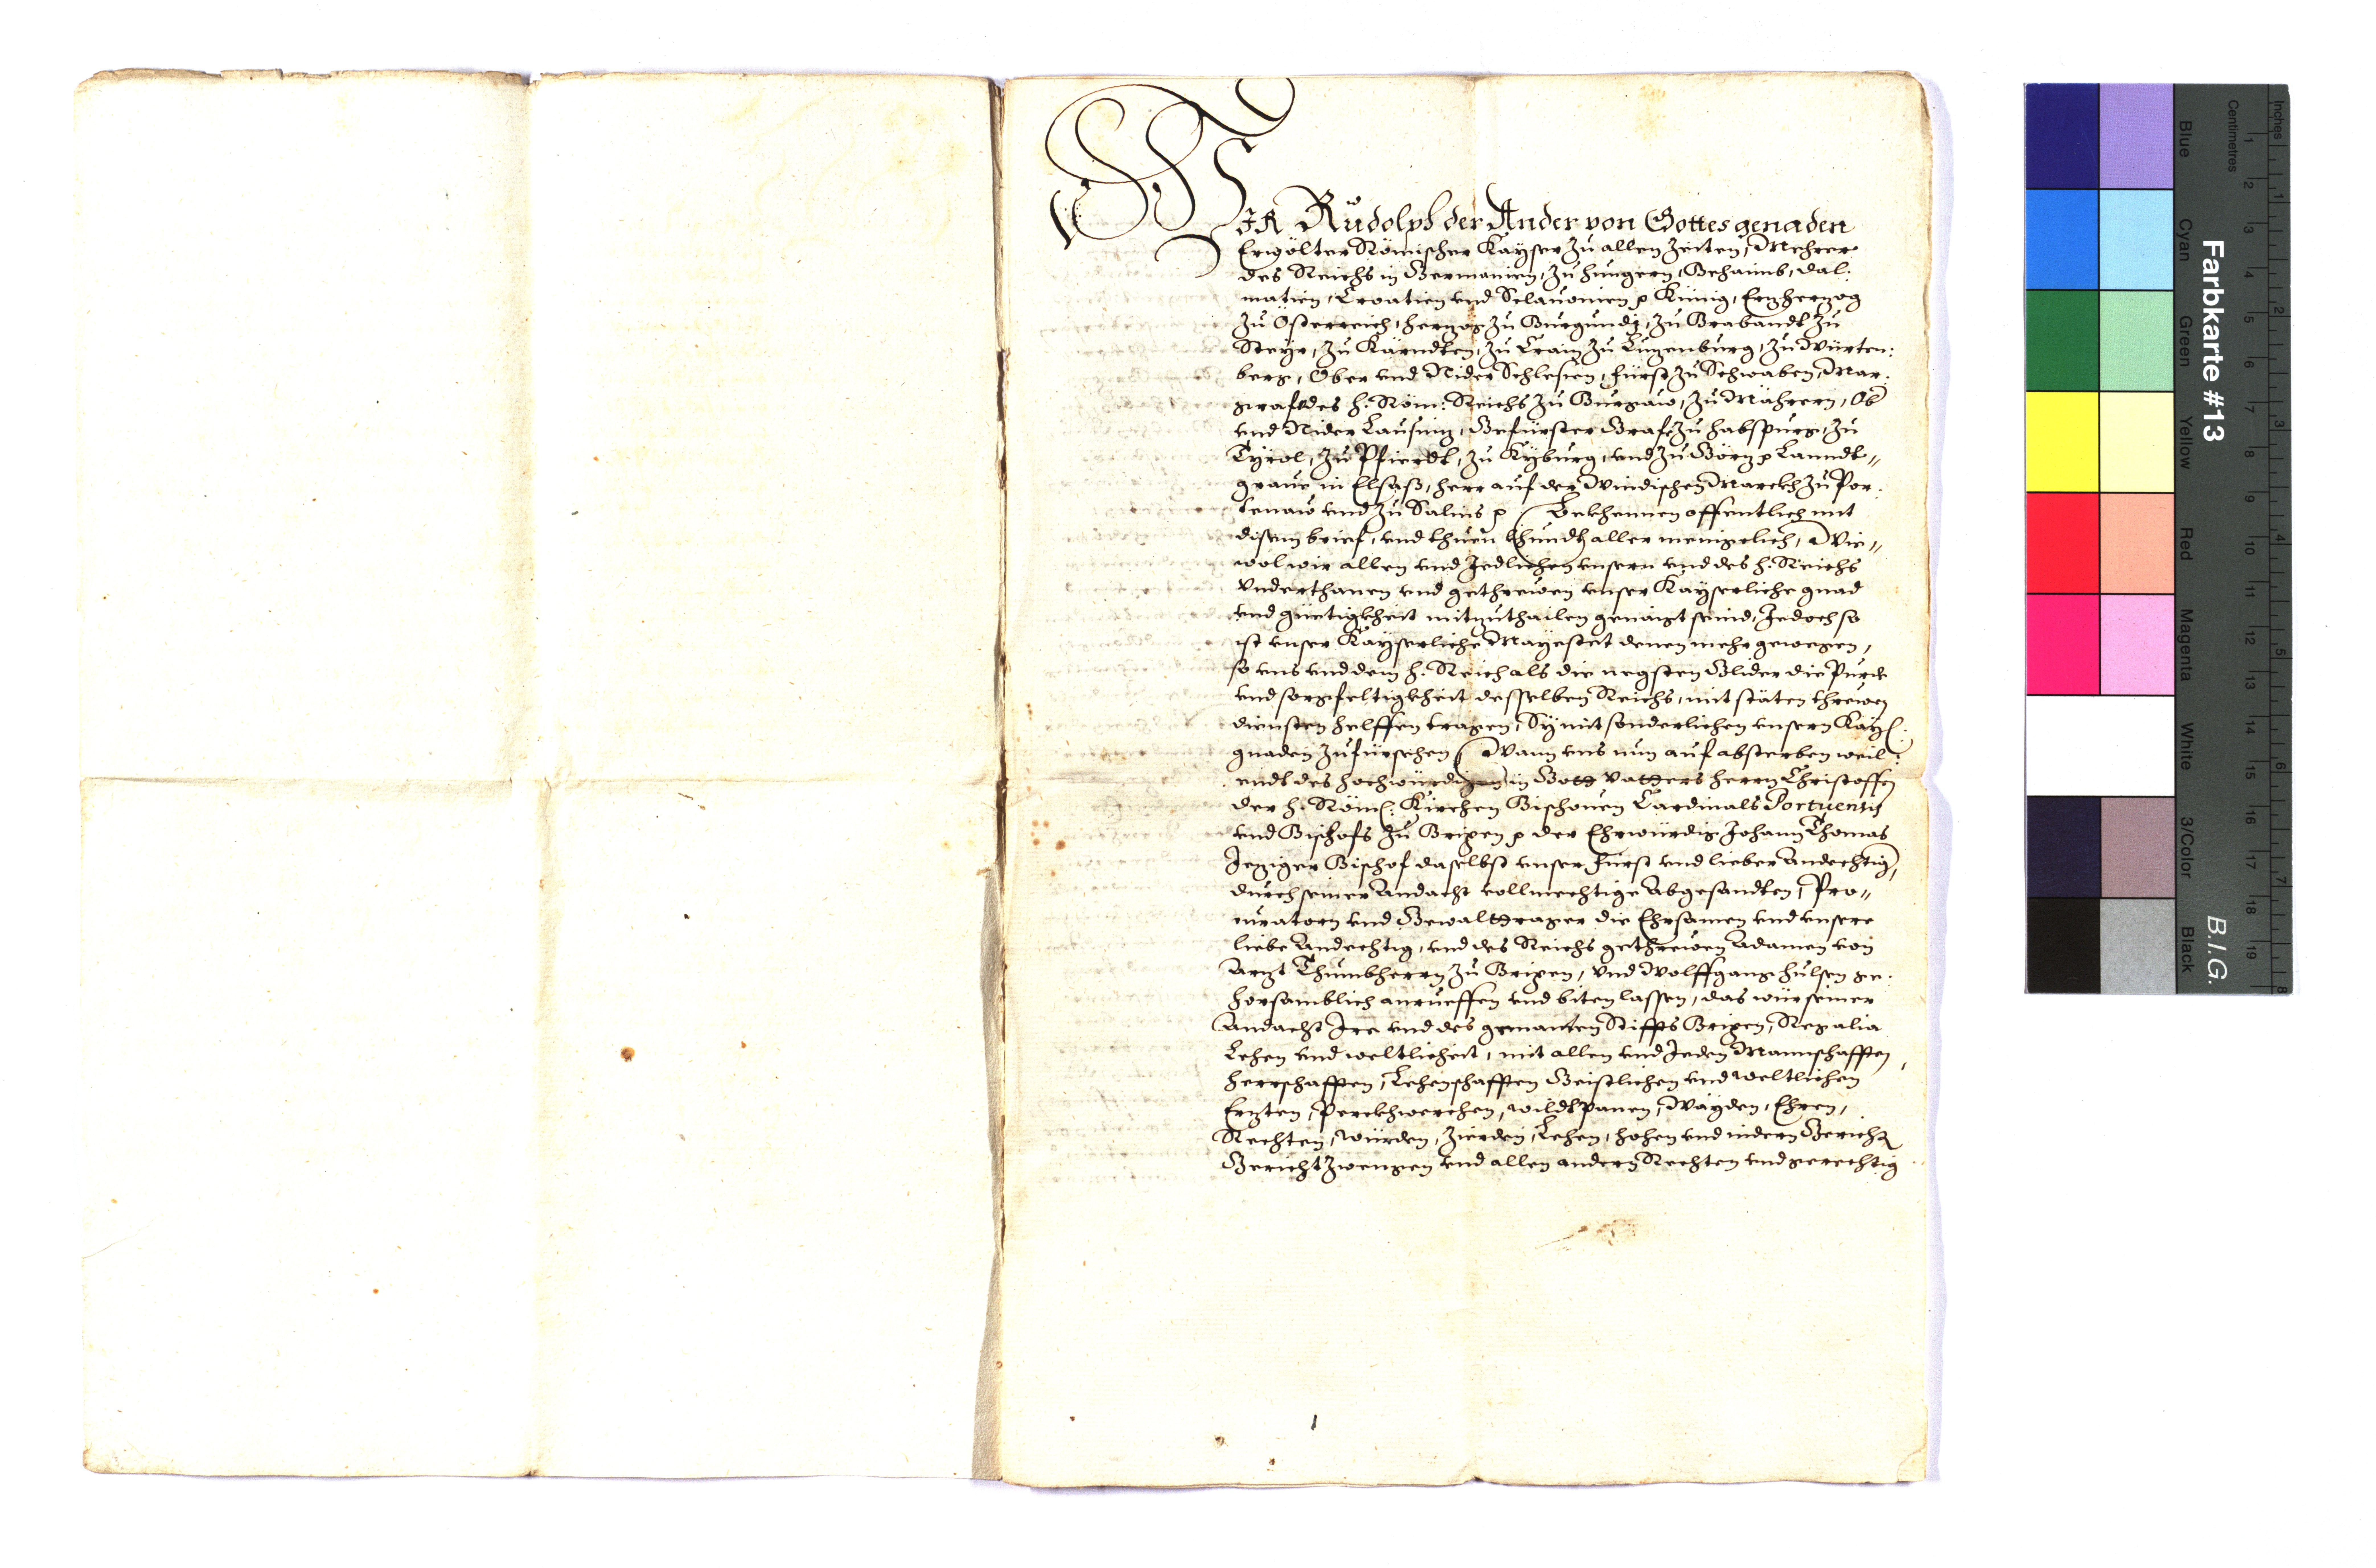 WIR Rudolph der Ander von Gottes genaden
Erwölter Römischer Kayser zu allen Zeiten, Mehrer
des Reichs in Germanien, zu Hungern, Behaimb, Dal:
matien, Croatien vnd Sclauonien p König, Erzherzog
zu Österreich, Herzog zu Burgundj, zu Brabandt zu
Steyr, zu Kärndten, zu Crain zu Luzenburg, zu Würten:
berg, Ober vnd Nider Schlesien, Fürst zu Schwaben, Mar:
graf des H: Röm: Reichs zu Burgaw, zu Mährern, Ob
vnd Nider Lausniz, Gefürster Graf zu Habspurg, zu
Tyrol, zu Pfierdt, zu Kyburg, vnd zu Görz p Lanndt„
graue in Elsaß, Herr auf der Windischen Marckh zu Por:
tenaw vnd zu Salins p Bekhennen offentlich mit
disem brief, vnd thuen khundt aller menigelich, Wie„
wol wir allen vnd Jedlichen vnsern vnd des H: Reichs
Vnderthanen vnd gethrewen vnser Kayserliche gnad
vnd güetigkheit mitzuthailen genaigt seind, Jedoch so
ist vnser Kayserliche Mayestet denen mehr gewegen,
so vns vnd dem H: Reich als die negsten Glider die Purde
vnd sorgfeltigkheit desselben Reichs, mit stäten threwen
diensten helffen tragen, Sy mit sonderlichen vnsern Kay:
gnaden zufürsehen Wann vns nun auf absterben weil:
endt des hochwürdigen in Gott Vatters herrn Christoffen
der H: Röm: Kirchen Bischouen Cardinals Portuensis
vnd Bischofs zu Brixen p der Ehrwürdig Johann Thomas
Jeziger Bischof daselbst vnser Fürst vnd lieber Andechtig,
durch seiner Andacht vollmechtige Abgesandten, Pro„
curatorn vnd Gewalttrager die Ehrsamen vnd vnsere
liebe Andechtig, vnd des Reichs gethrewen Adamen von
Arzt Thumbherrn zu Brixen, vnd Wolffgang hulsen ge:
horsamblich anrueffen vnd biten lassen, das wür seiner
Andacht Jre vnd des genanten Stiffts Brixen, Regalia
Lehen vnd weltlicheit, mit allen vnd Jeden Mannschafften,
Herrschafften, Lehenschafften Geistlichen vnd Weltlichen
Erzten, Perckhwerchen, Wildtpanen, Wayden, Ehren,
Rechten, Würden, Zierden, Lehen, hohen vnd nidern Gericht
Gericht Zwengen vnd allen andern Rechten vnd gerechtig
Farbkarte #13
B.I.G.
Inches
Centimetres
Blue
Cyan
Green
Yellow
Red
Magenta
White
3/Color
Black